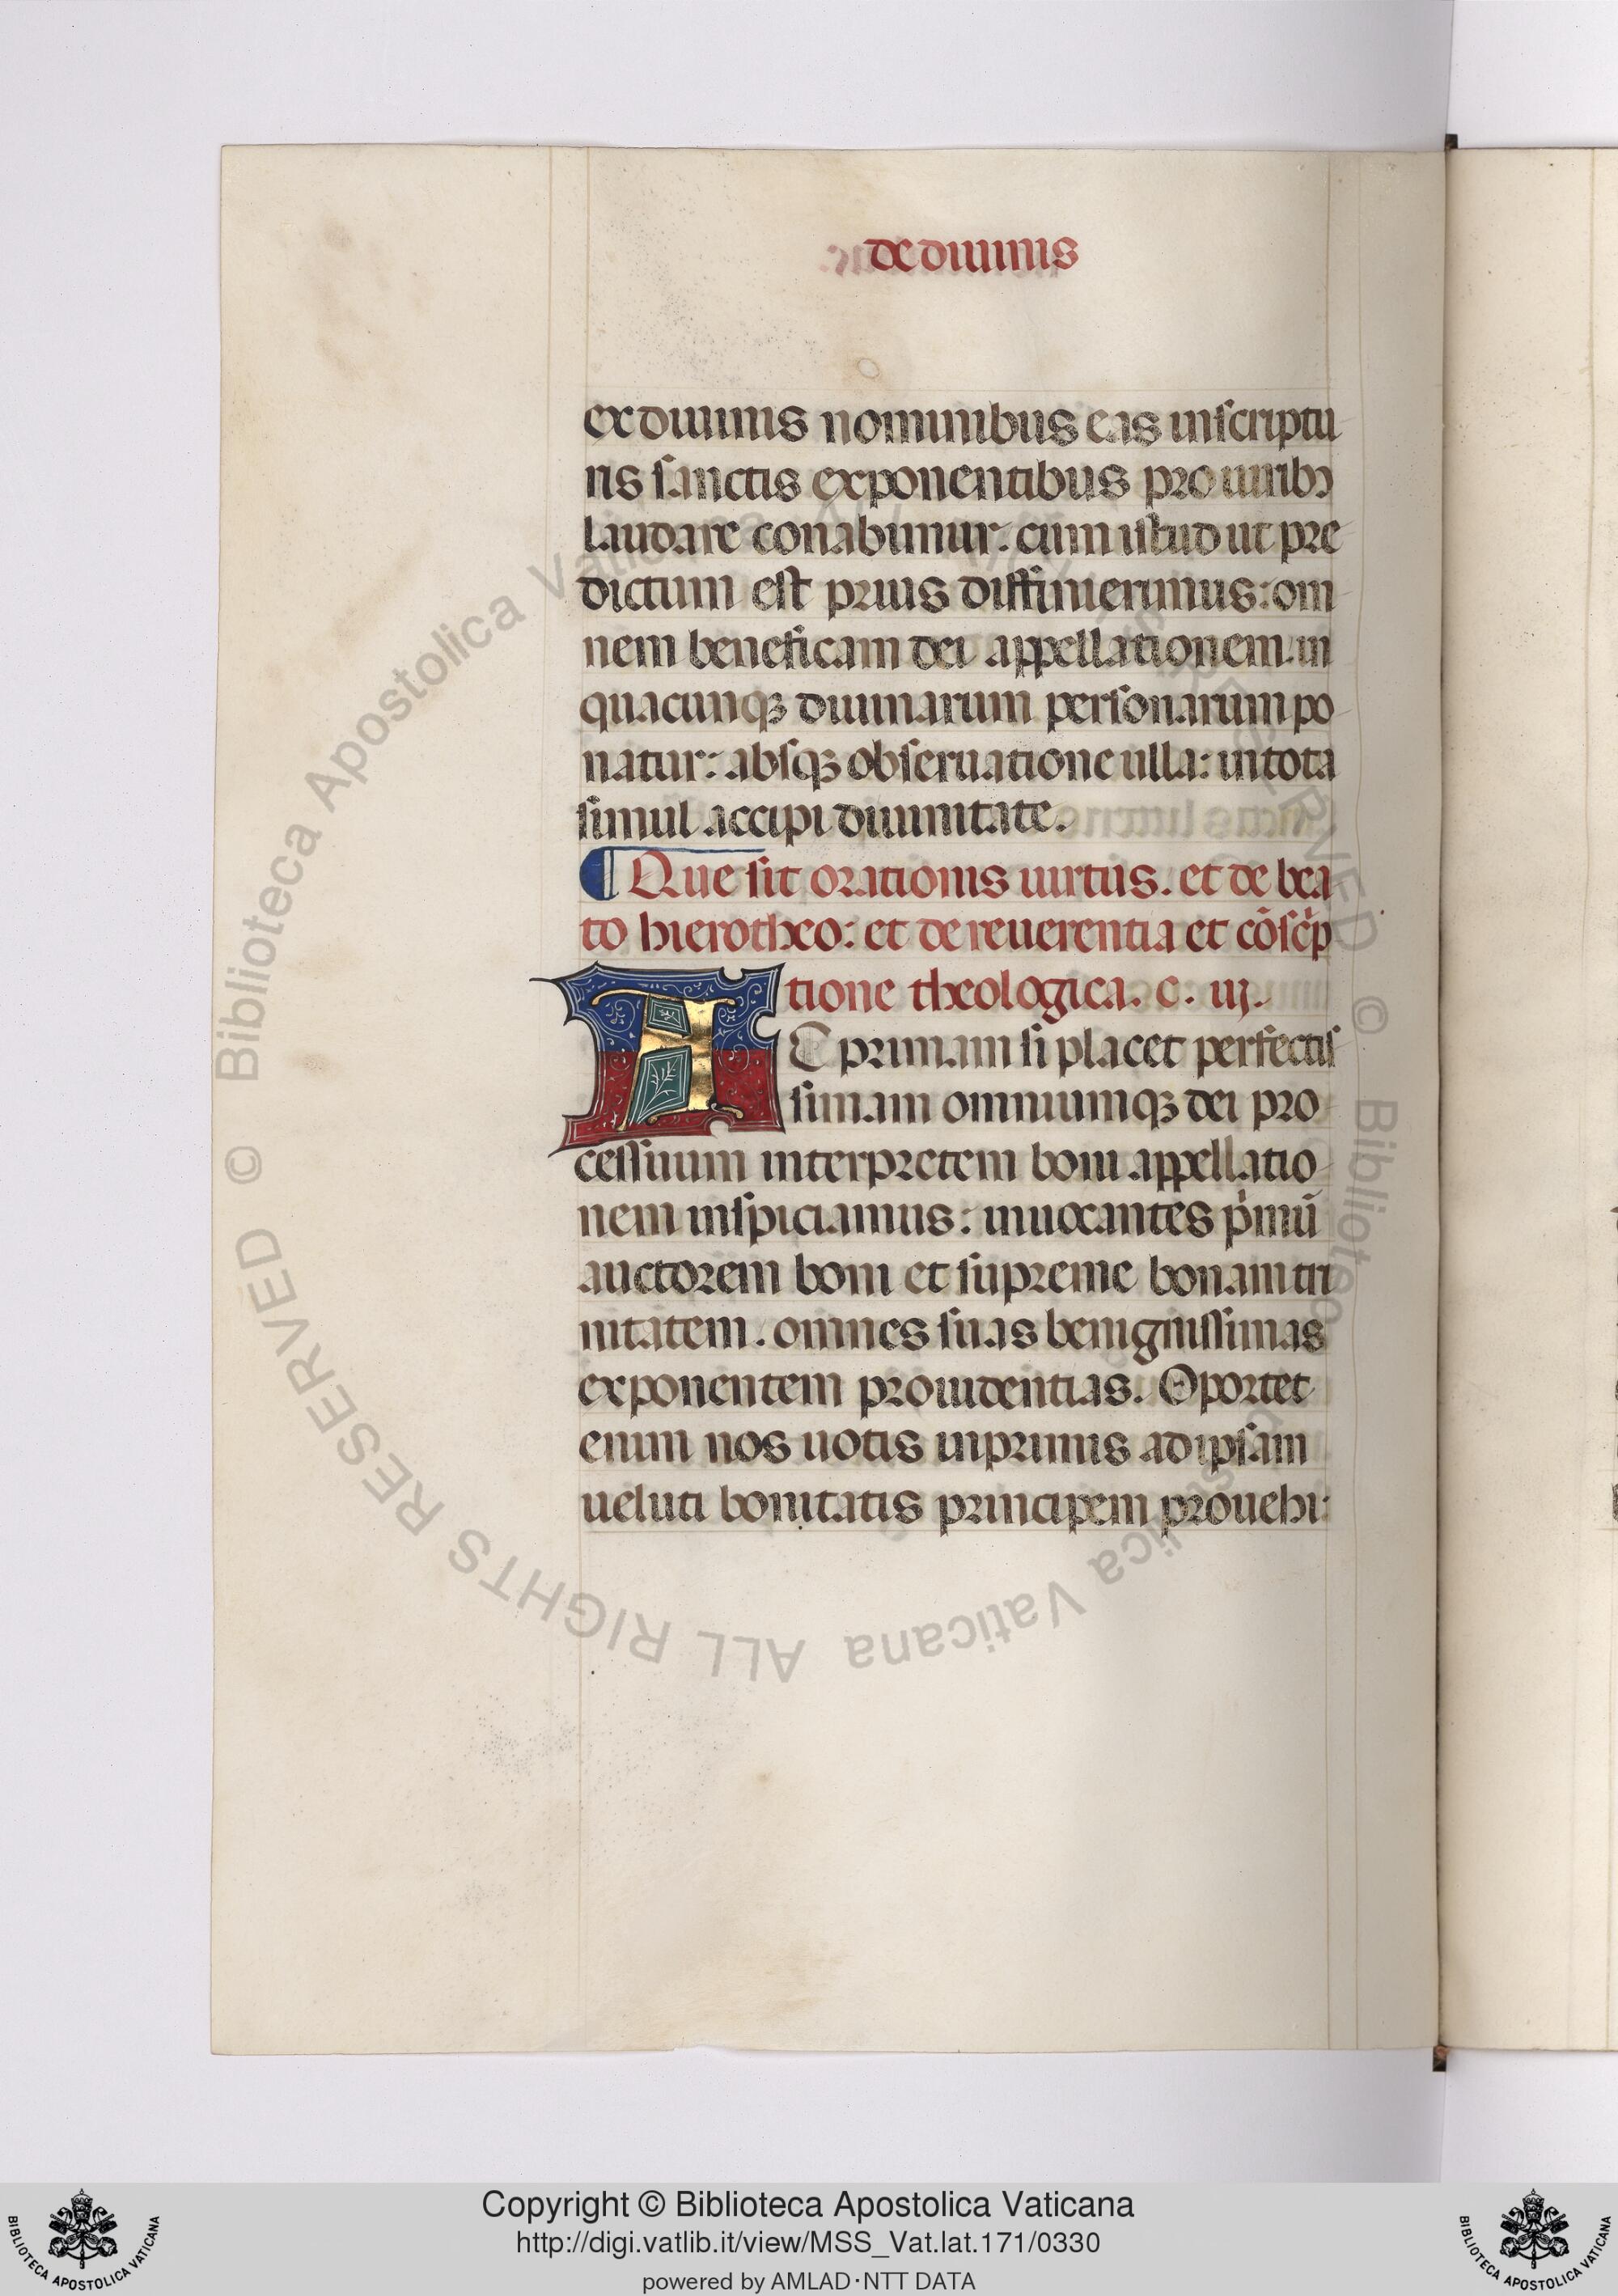 de diuinis
ex diuinis nominibus eas in scriptu
ris sanctis exponentibus pro uiribꝫ
laudare conabimur. cum istud ut pre
dictum est prius diffinierimus: om
nem beneficam dei appellationem in
quacunqꝫ diuinarum personarum po
natur: absqꝫ obseruatione ulla: in tota
simul accipi diuinitate.
¶ Que sit orationis uirtus. et de bea
to hierotheo: et de reuerentia et cōscͥp
tione theologica. c. iij.
AC primam si placet perfectis
simam omniumqꝫ dei pro
cessiuum interpretem boni appellatio
nem inspiciamus: inuocantes pͥmū
auctorem boni et supreme bonam tri
nitatem. omnes suas benignissimas
exponentem prouidentias. Oportet
enim nos uotis inprimis ad ipsam
ueluti bonitatis principem prouehi:
© Biblioteca Apostolica Vaticana ALL RIGHTS RESERVED © Biblioteca Apostolica Vaticana ALL RIGHTS RESERVED
Copyright © Biblioteca Apostolica Vaticana
http://digi.vatlib.it/view/MSS_Vat.lat.171/0330
powered by AMLAD·NTT DATA
BIBLIOTECA APOSTOLICA VATICANA
BIBLIOTECA APOSTOLICA VATICANA